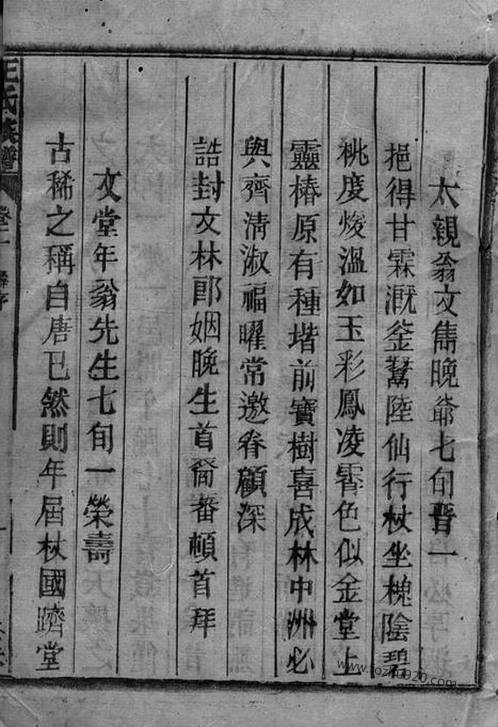 太親翁文雋晚爺七旬晉一
挹得甘霖溉釜鬵陸仙行杖坐槐陰碧
桃度烿溫如玉彩鳳凌霄色似金堂上
靈椿原有種堦前寶樹喜成林中洲必
與齊清淑福曜常邀眷顧深
誥封文林郎姻晚生首裔蕃頓首拜
文堂年翁先生七旬一榮壽
古稀之稱自唐已然則年屆杖國躋堂
王氏族譜
卷一
www.fozhu920.com